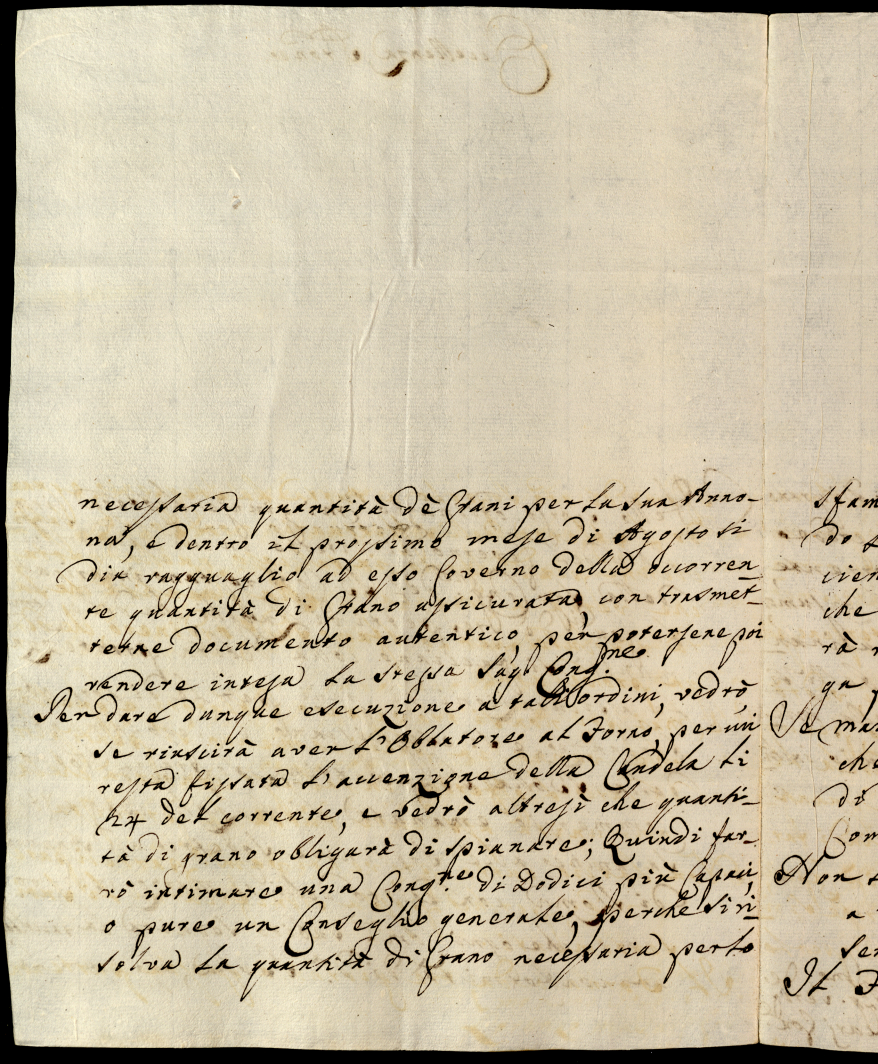 necessaria quantità dè Grani per la sua Anno-
na, e dentro il prossimo mese di Agosto si
dia ragguaglio ad esso Governo della occorren-
te quantità di Grano assicurata con trasmet-
terne documento autentico, per potersene poi
rendere intesa la stessa Sag. Cong.ne
Per dare dunque esecuzione a tali ordini, vedrò,
se riuscirà aver l'Oblatore al Forno, per cui
resta fissata l'accenzione della Candela li
24 del corrente, e vedrò altresì che quanti-
tà di grano obligarà di spianare; Quindi fa-
rò intimare una Cong.ne di Dodici più Capaci,
o pure un Conseglio generale, perche si ri-
solva la quantità di Grano necessaria per lo
sfam
do
cien
che
rà
ga
Se ma
che
di
Com
Non
a
ser
Il F